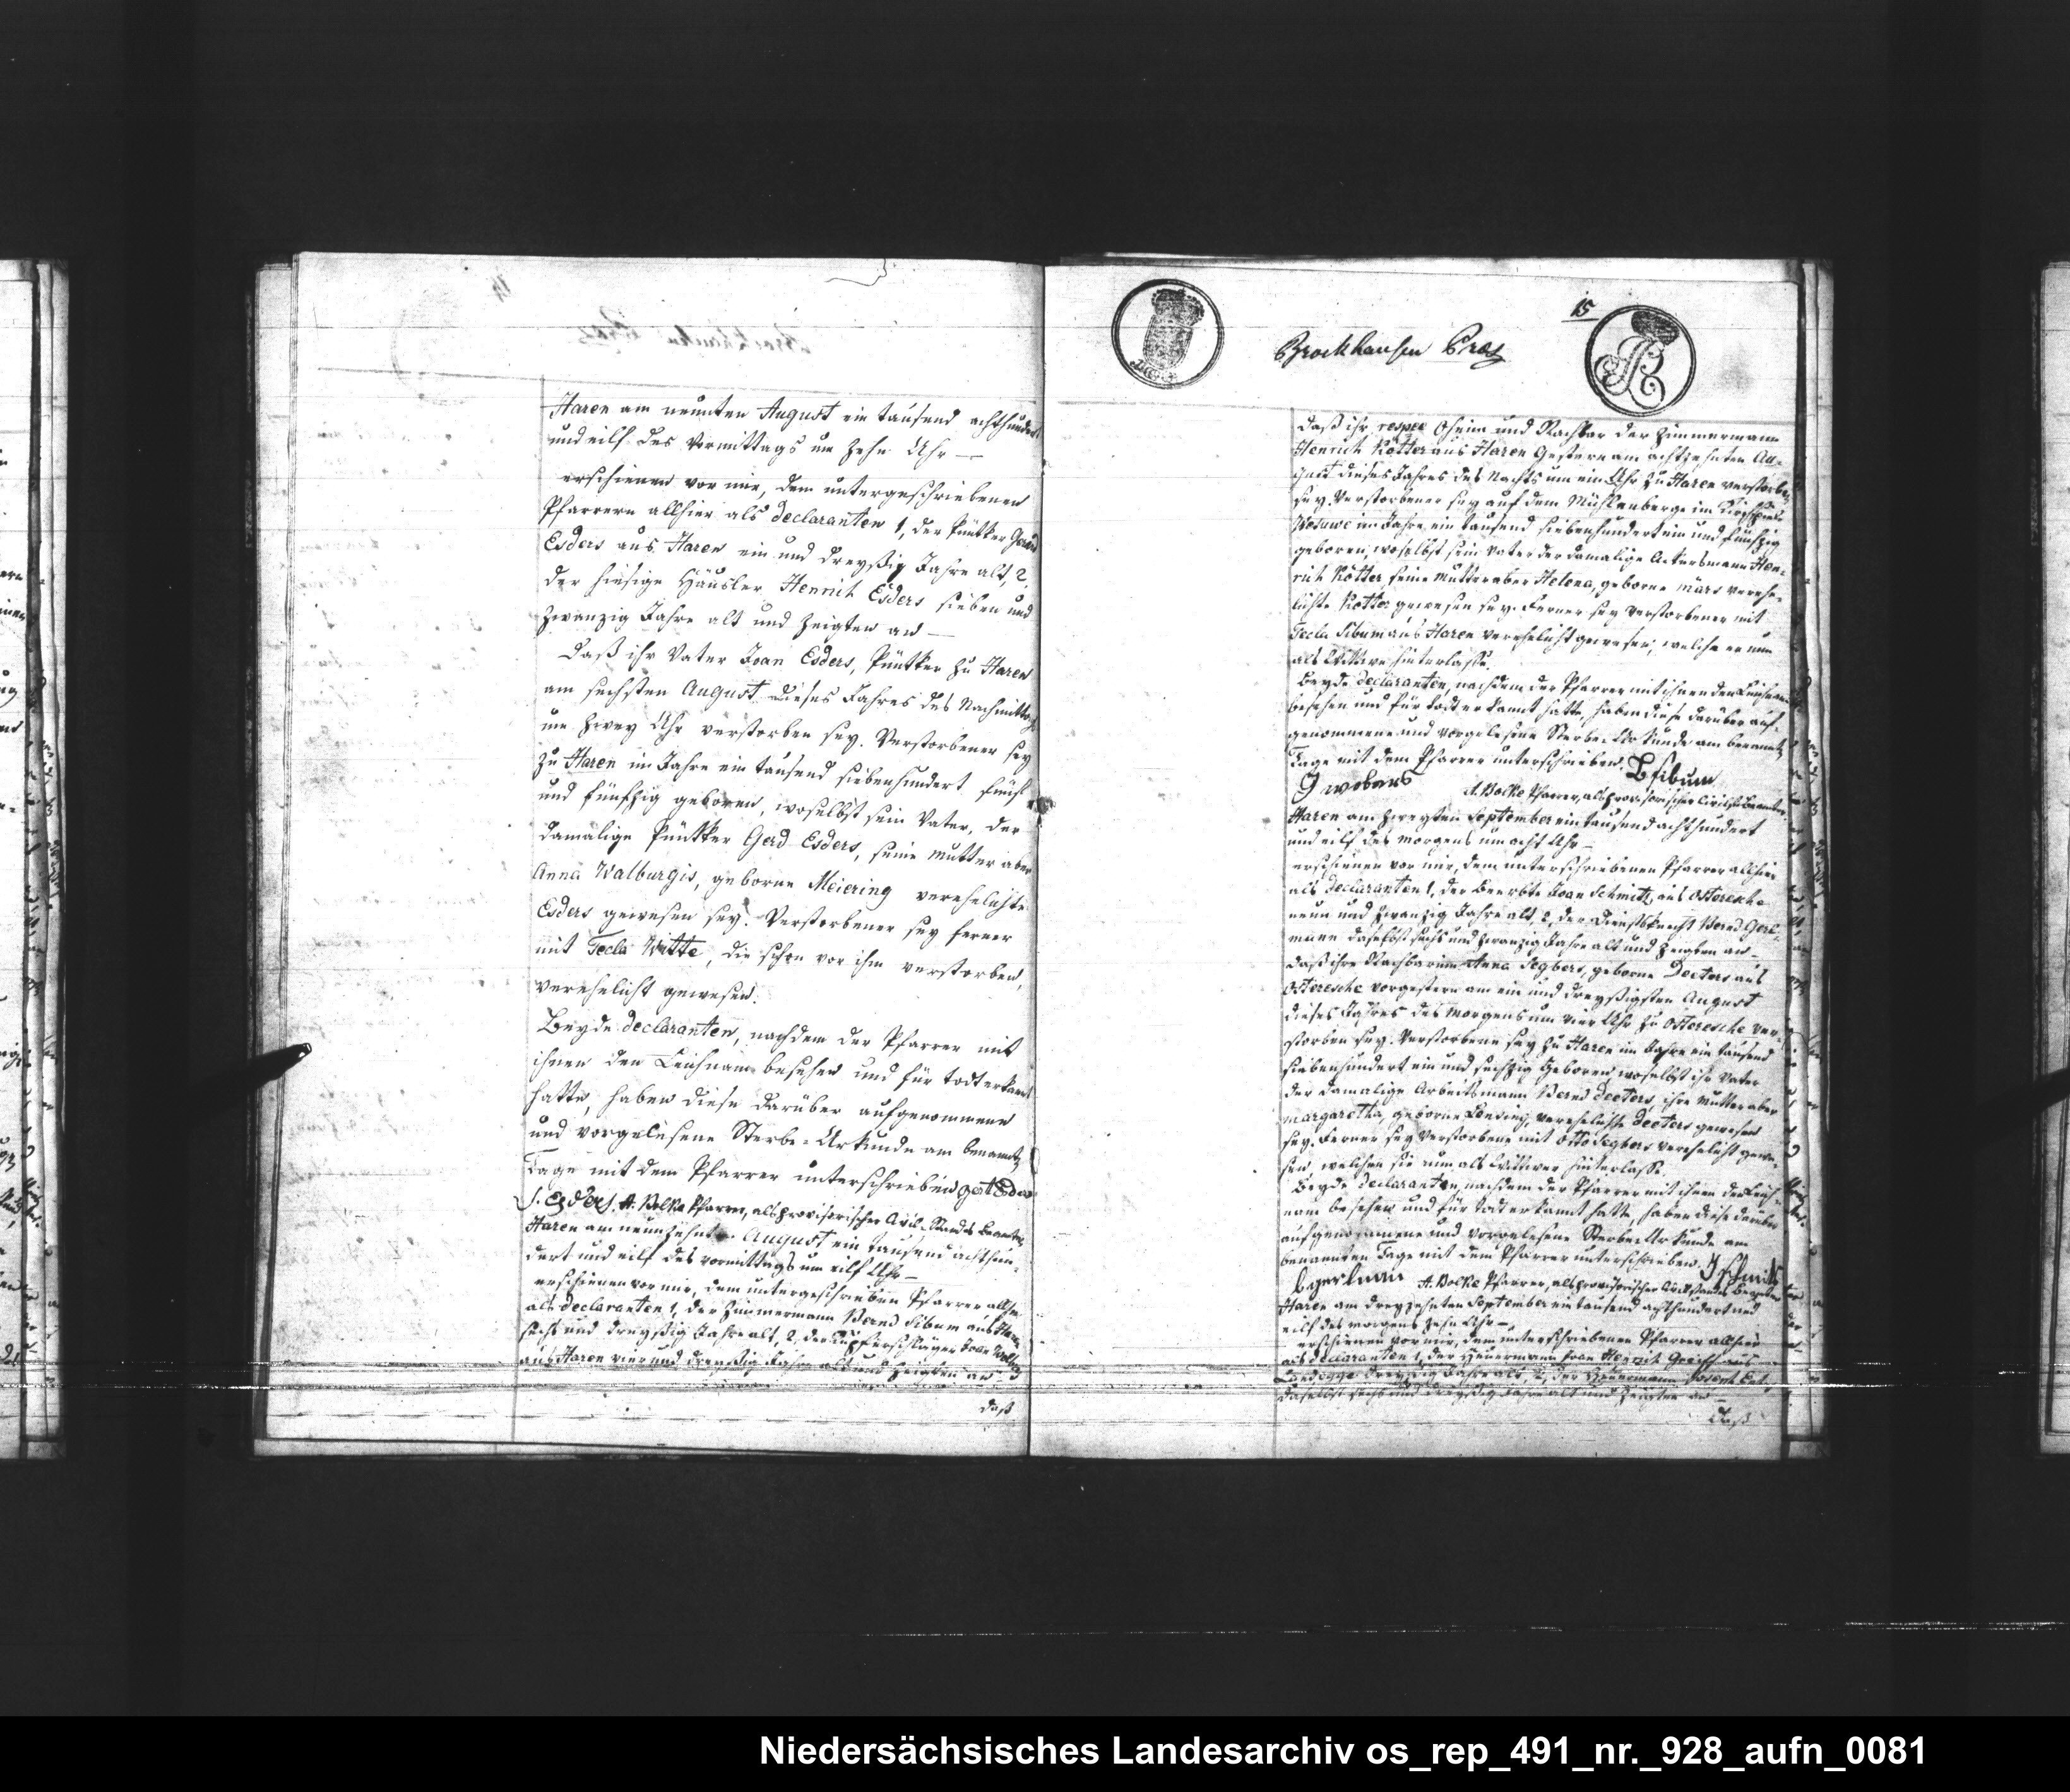 Haren am neunten August ein tausend achthundert
und eilf des Vormittags um zehn Uhr —
erschienen vor mir, dem untergeschriebenen
Pfarrern allhier als Declaranten 1, der Püntker Gerd
Esders aus Haren ein und dreyßig Jahre alt, 2,
der hiesige Häusler Henrich Esders sieben und
zwanzig Jahre alt und zeigten an —
Daß ihr Vater Joan Esders, Püntker zu Haren
am sechsten August dieses Jahres des Nachmittags
um zwey Uhr verstorben sey. Verstorbener sey
zu Haren im Jahre ein tausend siebenhundert fünf
und fünfzig geboren, woselbst sein Vater, der
damalige Püntker Gerd Esders, seine Mutter aber
Anna Walburgis, geborne Meiering verehelichte
Esders gewesen sey. Verstorbener sey ferner
mit Tecla Witte, die schon vor ihm verstorben,
verehelicht gewesen.
Beyde Declaranten, nachdem der Pfarrer mit
ihnen den Leichnam besehen und für todt erkannt
hatte, haben diese darüber aufgenommene
und vorgelesene Sterbe-Urkunde am benannten
Tage mit dem Pfarrer unterschrieben
Esders. A. Bolke Pfarrer, als provisorischer Civil-Standes Beamter
Haren am neunzehnten August ein tausend achthun-
dert und eilf des vormittags um eilf Uhr —
erschienen vor mir, dem untergeschrieben Pfarrer allhier
als Declaranten 1, der Zimmermann Bernd Sibum aus Haren
sechs und dreyßig Jahre alt, 2, der Kupferschläger Joan
aus Haren vier und dreyßig Jahre alt und zeigten an
daß
15
Brockhausen
daß ihr respec Oheim und Nachbar der Zimmermann
Henrich Kötter aus Haren gestern am achtzehnten Au-
gust dieses Jahres des Nachts um ein Uhr zu Haren verstorben
sey. Verstorbener sey auf dem Mühlenberge im Kirchspiele
Wesuwe im Jahre ein tausend siebenhundert ein und fünfzig
geboren, woselbst sein Vater der damalige Ackersmann Hen-
rich Kötter seine Mutter aber Helena, geborne märs verehe-
lichte Kötter gewesen sey. Ferner sey Verstorbener mit
Tecla Sibum aus Haren verehelicht gewesen, welche er nun
als Wittwe hinterlasse.
Beyde Declaranten, nachdem der Pfarrer mit ihnen den Leichnam
besehen und für todt erkannt hatte, haben diese darüber auf-
genommene und vorgelesene Sterbe-Urkunde am benannten
Tage mit dem Pfarrer unterschrieben. B Sibum
A. Bolke Pfarrer, als provisorischer Civilst. Beamter
Haren am zweyten September ein tausend achthundert
und eilf des morgens um acht Uhr —
erschienen vor mir, dem unterschriebenen Pfarrer allhier
als Declaranten 1, der Beerbte Joan Schmitz, aus Osteresche
neun und zwanzig Jahre alt, 2, der Dienstknecht Bernd Gerl-
mann daselbst sechs und zwanzig Jahre alt und zeigten an —
daß ihre Nachbarinn Anna Segbers, geborne Deeters aus
Osteresche vorgestern am ein und dreyßigsten August
dieses Jahres des Morgens um vier Uhr zu Osteresche ver-
storben sey. Verstorbene sey zu Haren im Jahre ein tausend
siebenhundert ein und sechzig geboren, woselbst ihr Vater
der damalige Arbeitsmann Bernd Deeters, ihre Mutter aber
Margaretha, geborne verehelichte Deeters gewesen
sey. Ferner sey Verstorbene mit Otto Segbers verehelicht gewe-
sen, welchen sie nun als Wittwer hinterlasse.
Beyde Declaranten, nachdem der Pfarrer mit ihnen den Leich-
nam besehen und für todt erkannt hatte, haben diese darüber
aufgenommene und vorgelesene Sterbe-Urkunde am
benannten Tage mit dem Pfarrer unterschrieben. J Schmits
A. Bolke Pfarrer, als provisorischer Civilstandes Beamter
Haren am dreyzehnten September ein tausend achthundert und
eilf des morgens zehn Uhr —
erschienen vor mir, dem unterschriebenen Pfarrer allhier
als Declaranten 1, der Heuermann Joan Henrich aus
Landegge dreyßig Jahre alt, 2, der Heuermann Joseph
daselbst sechs und dreyßig Jahre alt und zeigten an
daß
Niedersächsisches Landesarchiv os_rep_491_nr._928_aufn_0081